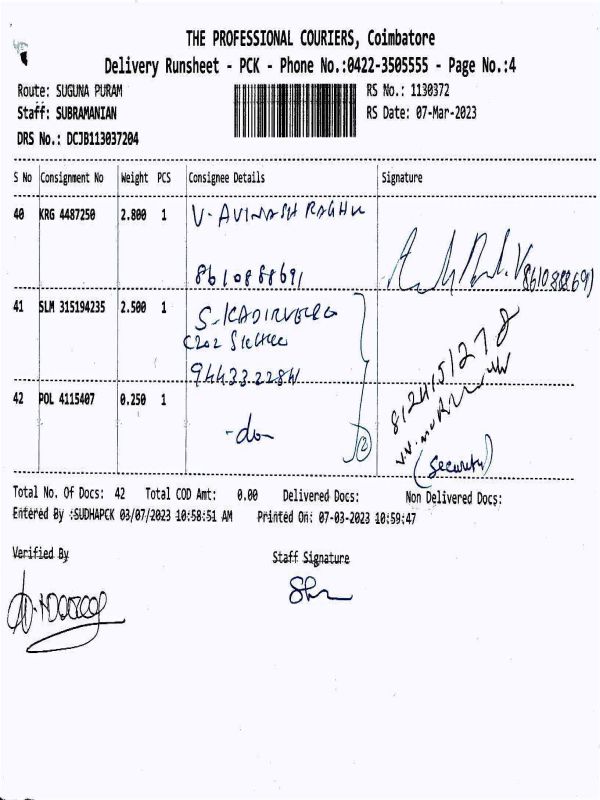 THE PROFESSIONAL COURIERS, Coimbatore
Delivery Runsheet - PCK - Phone No.:0422-3505555 - Page No.:4
Route: SUGUNA PURAM RS No.: 1130372
Staff: SUBRAMANIAN RS Date: 07-Mar-2023
DRS No.: DCJB113037204
S No Consignment No Weight PCS Consignee Details Signature
40 KRG 4487250 2.800 1 V. AVINASH RAGHU
8610888691 8610888691
41 SLM 315194235 2.500 1 S. KADIRVELU
C202
42 POL 4115407 0.250 1 -do-
(2)
8124151278
(Security)
Total No. Of Docs: 42 Total COD Amt: 0.00 Delivered Docs: Non Delivered Docs:
Entered By :SUDHAPCK 03/07/2023 10:58:51 AM Printed On: 07-03-2023 10:59:47
Verified By Staff Signature